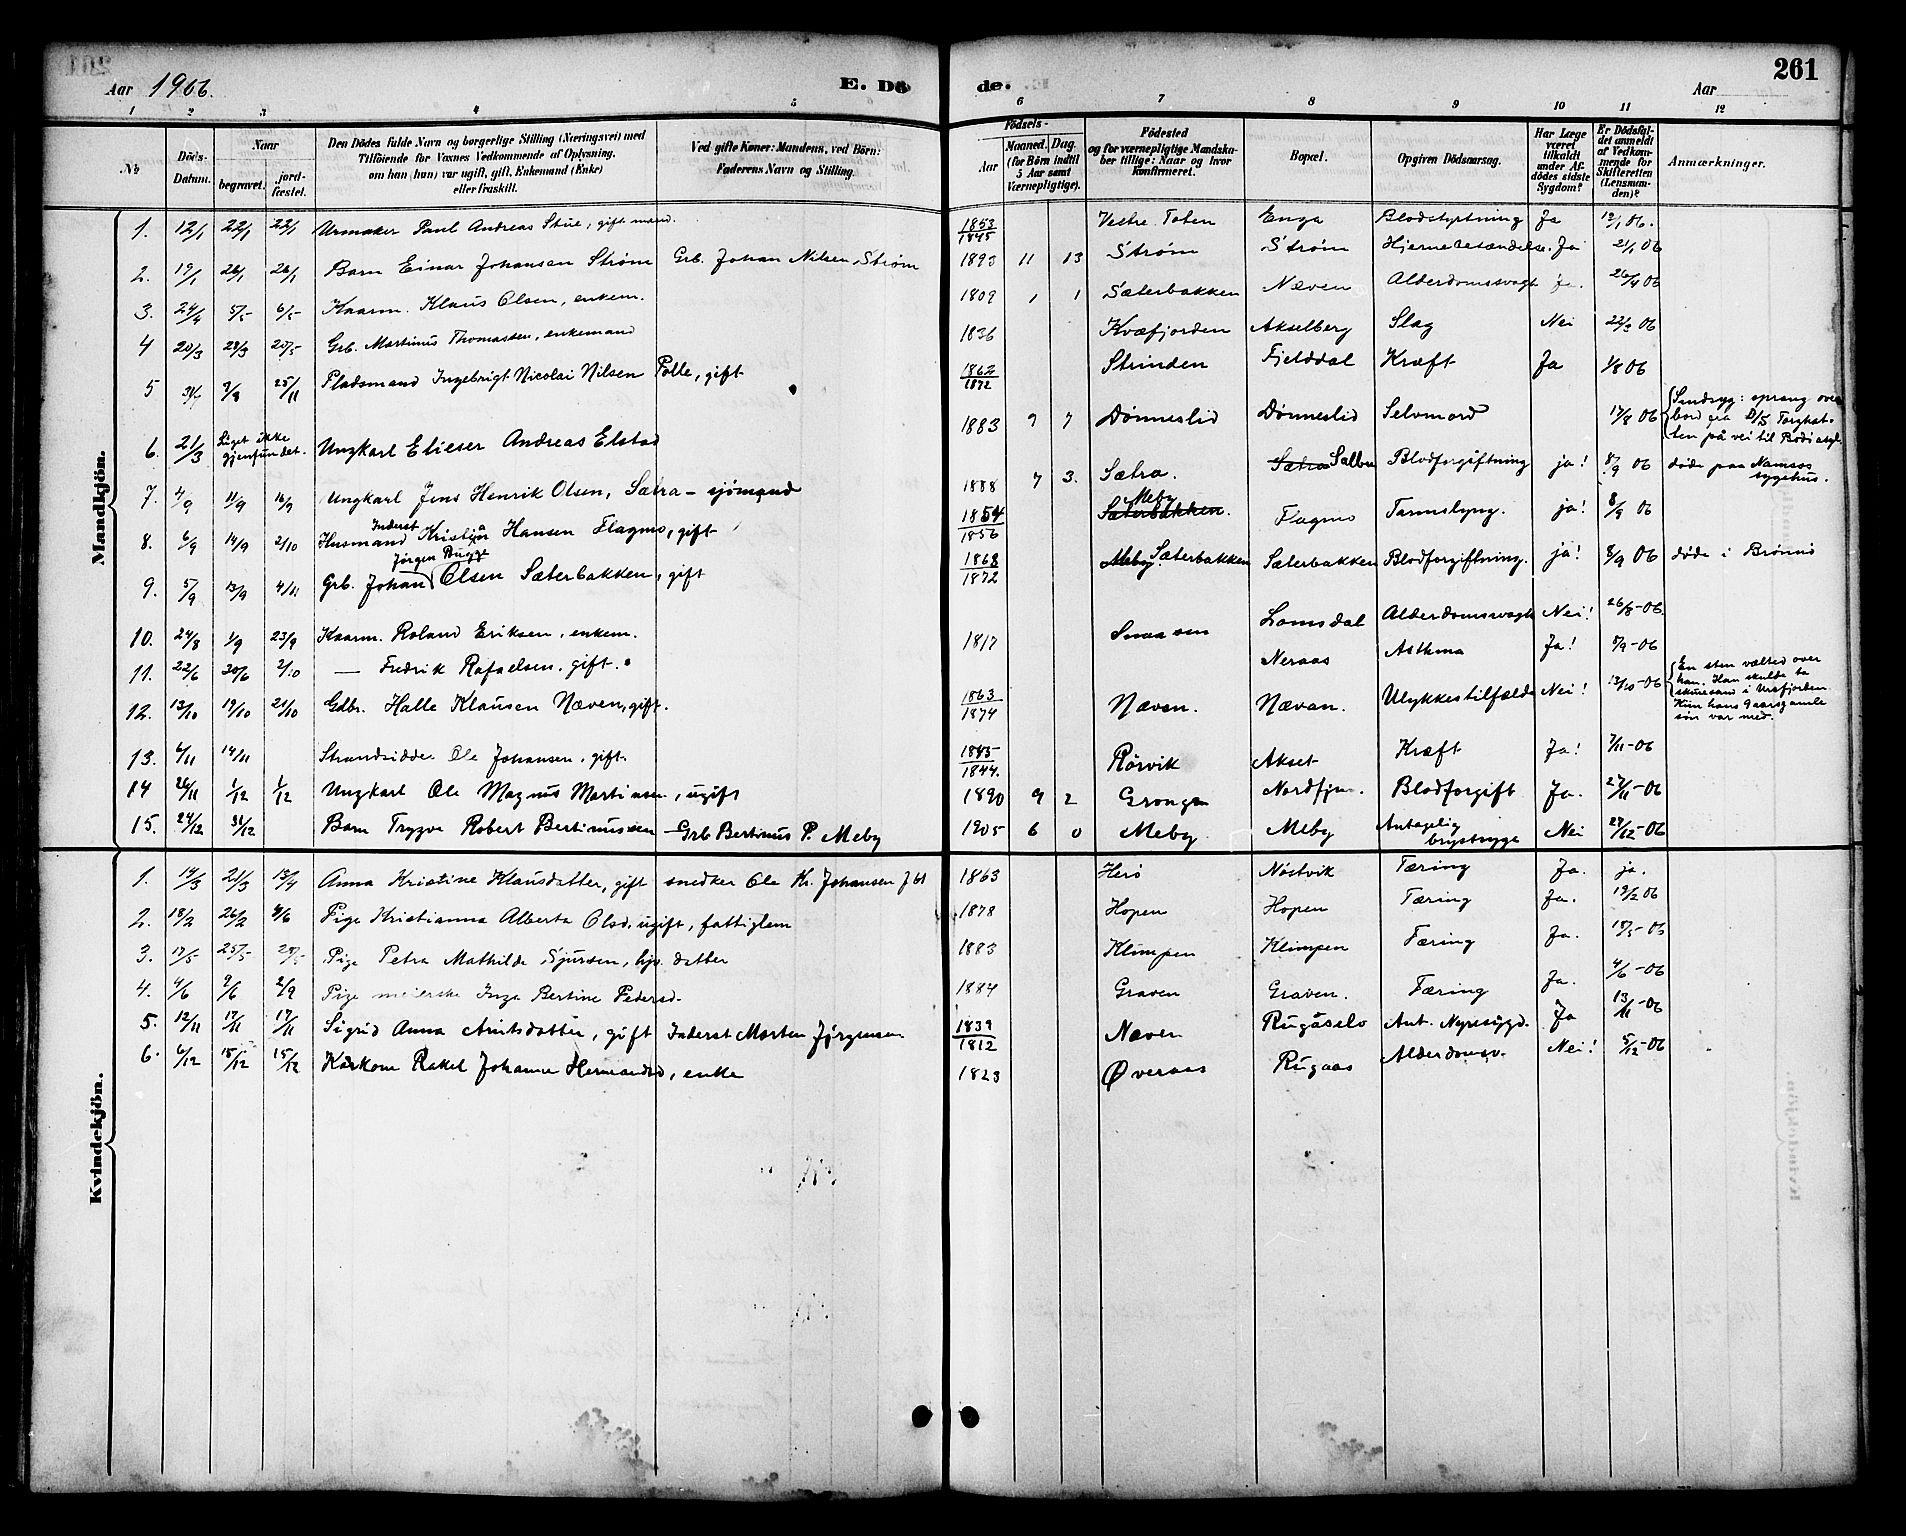 261
Aar 1906.
E. Dö
de.
Aar
1 2 3 4 5 6 7 8 9 10 11 12
No
Döds-Datum.
Naar
begravet.
jord-fæstet.
Den Dödes fulde Navn og borgerlige Stilling (Næringsvei) med
Tilföiende for Voxnes Vedkommende af Oplysning,
om han (hun) var ugift, gift, Enkemand (Enke)
eller fraskilt.
Ved gifte Koner: Mandens, ved Börn:
Faderens Navn og Stilling.
Födsels-
Aar
Maaned. Dag.
(for Börn indtil
5 Aar samt
Værnepligtige).
Födested
og for værnepligtige Mandska-
ber tillige: Naar og hvor
konfirmeret.
Bopæl.
Opgiven Dödsaarsag.
Har Læge
været
tilkaldt
under Af-
dödes sidste
Sygdom?
Er Dödsfal-
det anmeldt
af Vedkom-
mende for
Skifteretten
(Lensman-
den)?
Anmærkninger.
Mandkjön.
1. 12/1 22/1 22/1 Urmaker Paul Andreas Stue, gift mand. 1853/1845 Vestre Toten Enga Blodstyrtning Ja 12/1 06.
2. 19/1 26/1 26/1 Barn Einar Johansen Strøm Grb. Johan Nilsen Strøm 1893 11 13 Strøm Strøm Hjernebetændelse. Ja 21/1 06
3. 24/4 5/5 6/5 Kaarm. Klaus Olsen, enkem. 1809 1 1 Sæterbakken Næven Alderdomssvagh Ja. 26/4 06
4 20/3 29/3 20/5 Grb. Martinus Thomassen, enkemand 1836 Kvæfjorden Akselberg Slag Nei 22/3 06
5 31/7 9/8 25/11 Pladsmand Ingebrigt Nicolai Nilsen Polle, gift 1862/1872 Strinden Fjelddal Kræft Ja 1/8 06
6. 21/3 Liget ikke gjenfundet. Ungkarl Elieser Andreas Elstad 1883 9 7 Dønneslid Dønneslid Selvmord 17/8 06 Sindsyg: sprang over
bord fra D/S Torghat-
ten på vei til Bodø asyl.
7. 4/9 11/9 16/9 Ungkarl Jens Henrik Olsen, Sætra - sjømand 1888 7 3. Sætra. Sætra Salbu Blodforgiftning ja! 8/9 06 døde paa Namsos
sygehus.
8. 6/9 14/9 2/10 Husmand Inderst Kristian Hansen Flagmo, gift 1854/1856 Sæterbakken. Meby Flagmo Tarmslyng. ja! 8/9 06
9. 5/9 13/9 4/11 Grb. Johan Jørgen Bugge Olsen Sæterbakken, gift 1868/1872 Meby. Sæterbakken Sæterbakken Blodforgiftning. ja! 8/9 06 døde i Brønnø
10. 24/8 1/9 23/9 Kaarm. Roland Eriksen, enkem. 1817 Snaasen Lomsdal Alderdomssvagh Nei! 26/8-06
11. 22/6 30/6 2/10 — Fredrik Rafaelsen, gift. Neraas Asthma Ja! 8/9-06
12. 13/10 19/10 21/10 Gdbr. Halle Klausen Næven, gift. 1863/1874 Næven. Nævan. Ulykkestilfælde Nei! 13/10-06 En sten vælted over
han. Han skulde ta
skuresand i Ursfjorden.
Kun hans 9 aarsgamle
søn var med.
13. 6/11 14/11 Strandsidder Ole Johansen, gift. 1845/1844. Rörvik Akset Kræft Ja! 7/11-06
14 26/11 1/12 1/12 Ungkarl Ole Magnus Martinsen, ugift 1890 9 2 Grong Blodforgift Ja. 27/11-06
15. 24/12 31/12 Barn Trygve Robert Bertinussen - Grb Bertinus P. Meby 1905 6 0 Meby. Meby Antagelig
brystsyge Nei 27/12-06
Kvindekjön.
1. 14/3 21/3 13/4 Anna Kristine Klausdatter, gift snedker Ole Kr. Johansen 1863 Herö Nöstvik Tæring Ja. ja.
2. 18/2 26/2 4/6 Pige Kristianna Alberta Olsd. ugift, fattiglem 1878 Hopen Hopen Tæring Ja. 19/2 06
3. 17/5 25/5 29/5 Pige Petra Mathilde Sjursen, hjv. datter 1883 Klimpen Klimpen Tæring Ja. 18/5-06
4. 4/6 9/6 2/9 Pige meierske Inga Bertine Pedersd. 1884 Graven Graven. Tæring Ja. 4/6-06
5. 12/11 17/11 17/11 Sigrid Anna Arntsdatter, gift Inderst Morten Jørgensen 1839/1812 Næven Rugåselv Ant. Nyresygd. Ja 13/11-06
6. 6/12 15/12 15/12 Kårkone Rakel Johanna Hermansd, enke 1823 Øveraas Rugaas Alderdomsv. Nei! 8/12-06